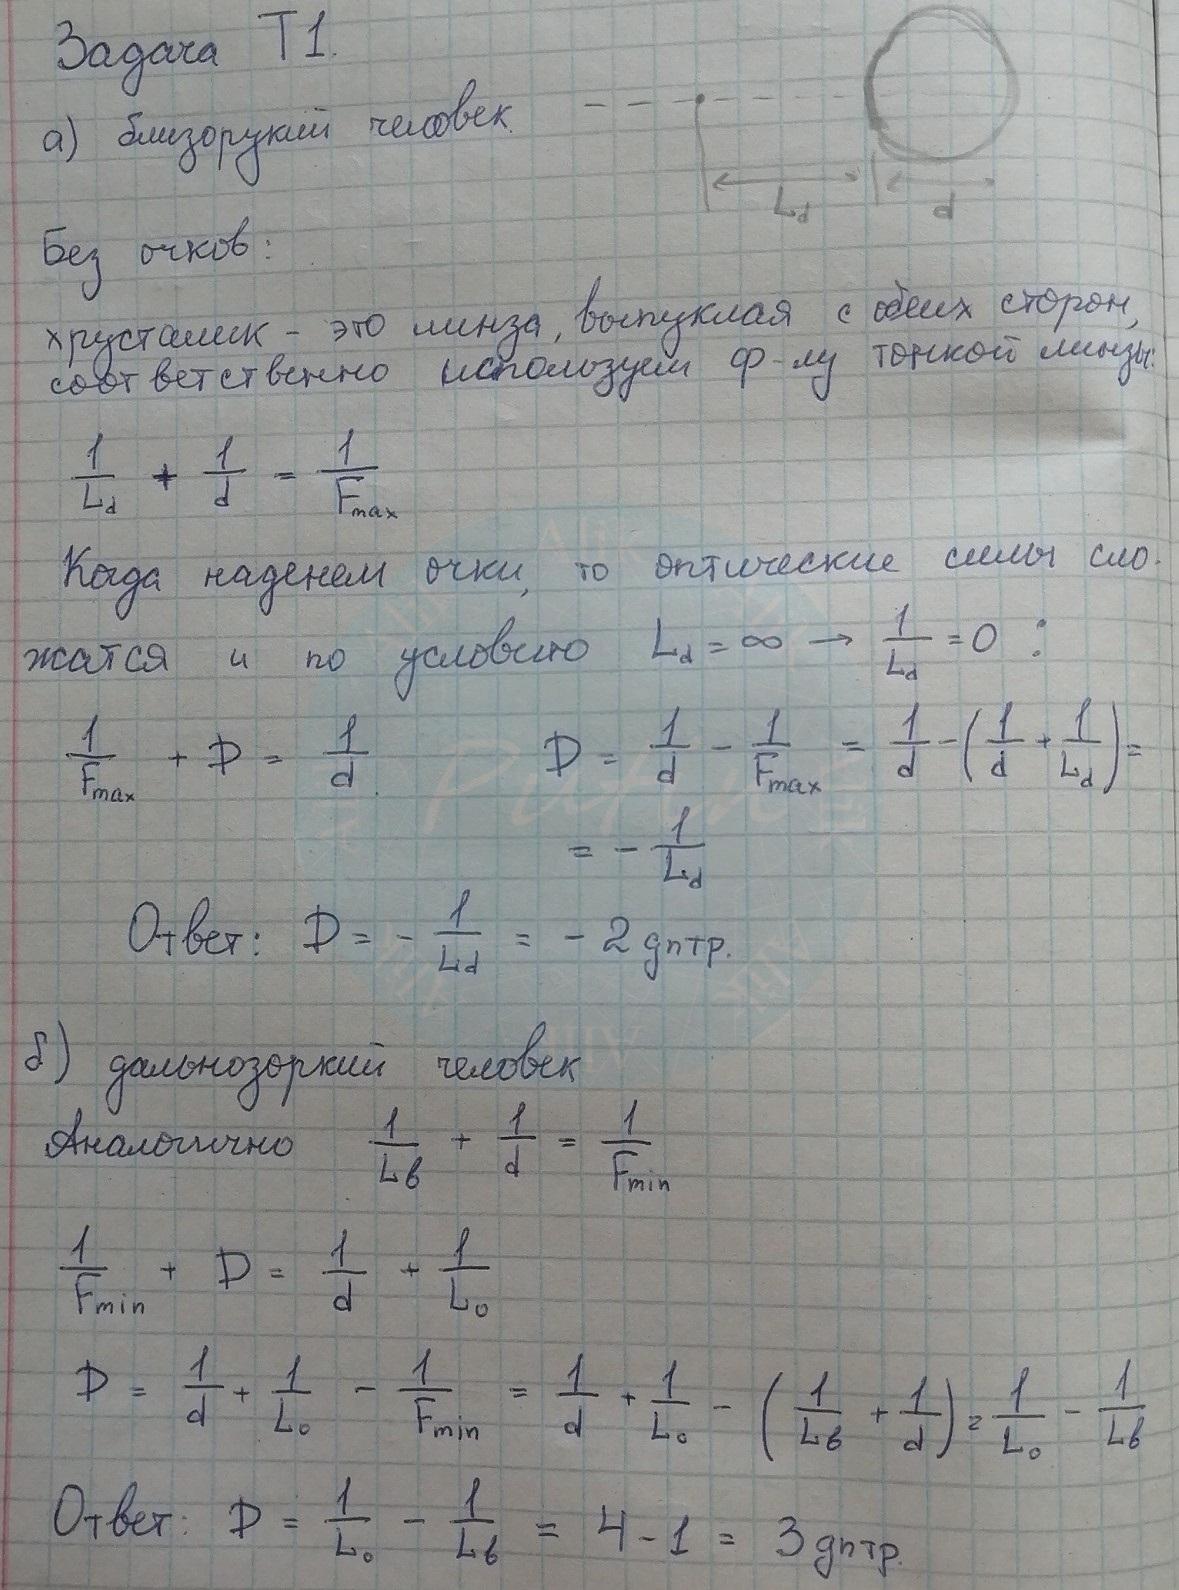 Задача Т1.
а) близорукий человек.
L_d d
Без очков:
хрусталик - это линза, выпуклая с обеих сторон,
соответственно используем ф-лу тонкой линзы:
1/L_d + 1/d = 1/F_max
Когда наденем очки, то оптические силы сло-
жатся и по условию L_d = ∞ → 1/L_d = 0 :
1/F_max + D = 1/d D = 1/d - 1/F_max = 1/d - (1/d + 1/L_d) =
= - 1/L_d
Ответ: D = - 1/L_d = - 2 дптр.
б) дальнозоркий человек
Аналогично 1/L_б + 1/d = 1/F_min
1/F_min + D = 1/d + 1/L_0
D = 1/d + 1/L_0 - 1/F_min = 1/d + 1/L_0 - (1/L_б + 1/d) = 1/L_0 - 1/L_б
Ответ: D = 1/L_0 - 1/L_б = 4 - 1 = 3 дптр.